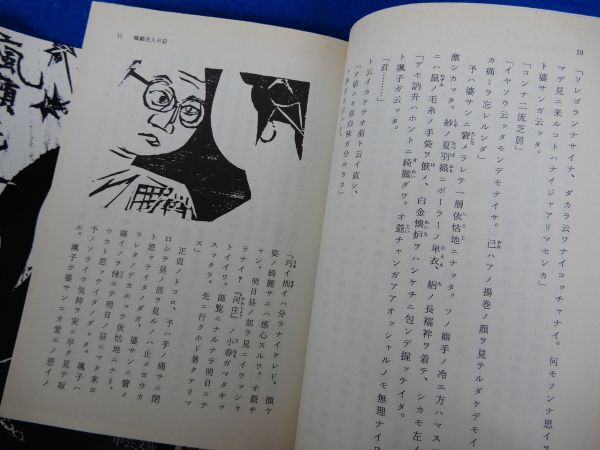 10
「ソレゴランナサイナ、ダカラ云ワナイコッチャナイ。何モソンナ思イヲ
マデ見ニ来ルコトハナイジャアリマセンカ」
ト婆サンガ云ッタ。
「コンナ二流芝居」
「イヤソウ云ッタモンデモナイサ。己ハアノ揚巻ノ顔ヲ見テルダケデモイ
カ痛ミヲ忘レルンダ」
予ハ婆サンニ窘メラレテ一層依怙地ニナッタ。ソノ癖手ノ冷エ方ハマス
激シカッタ。紗ノ夏羽織ニポーラーノ単衣、絽ノ長襦袢ヲ着テ、シカモ左ノ
ニハ鼠ノ毛糸ノ手袋ヲ嵌メ、白金懐炉ヲハンケチニ包ンデ握ッテイタ。
「デモ訥升ハホントニ綺麗ダワ。オ爺チャンガアアオッシャルノモ無理ナイ
ト颯子ガ云ッタ。
「君……」
ト云イカケテオ前ト云イ直シ、
「オ前ニモ面白味ガ分ルカネ」
11 瘋癲老人日記
「巧イ拙イハ分ラナイケレド、顔ヤ
姿ノ綺麗サニハ感心スルワ。オ爺チ
ャン、明日昼ノ部ヲ見ニイラッシャ
ラナイ?『河庄』ノ小春ガキッ
トイイワヨ。御覧ニナルナラ明日ニナ
スッタラ。先ニ行クホド暑クナリマ
ス」
正直ノトコロ、予ハ手ノ痛サニ閉
口シテ昼ノ部ヲ見ルノハ止メヨウカ
ト思ッテイタノダガ、婆サンニ窘メ
ラレタノデカエッテ依怙地ニナリ、
痛イノヲ怺エテ明日ノ昼ニマタ来ヨ
ウカト思ッテイタノダッタ。颯子ハ
予ノソウイウ気持ヲ実ニ早ク見テ取
ル。颯子ガ婆サンニオ覚エノ悪イノ
瘋癲
中公文庫